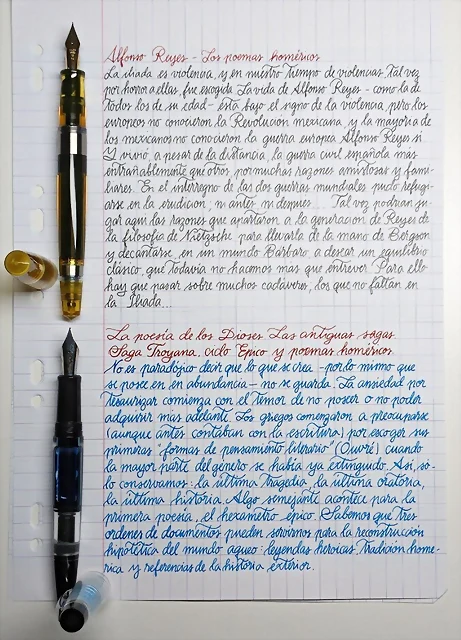 Alfonso Reyes - Los poemas homéricos
La ilíada es violencia, y en nuestro tiempo de violencias, tal vez
por horror a ellas, fue escogida. La vida de Alfonso Reyes - como la de
todos los de su edad - está bajo el signo de la violencia, pero los
europeos no conocieron la Revolución mexicana, y la mayoría de
los mexicanos no conocieron la guerra europea. Alfonso Reyes sí.
Y vivió, a pesar de la distancia, la guerra civil española más
entrañablemente que otros, por muchas razones amistosas y fami-
liares. En el interregno de las dos guerras mundiales pudo refugi-
arse en la erudición; ni antes ni después... Tal vez podrían ju-
gar aquí las razones que apartaron a la generación de Reyes de
la filosofía de Nietzsche para llevarla de la mano de Bergson
y decantarse, en un mundo bárbaro, a desear un equilibrio
clásico, que todavía no hacemos más que entrever. Para ello
hay que pasar sobre muchos cadáveres, los que no faltan en
la Ilíada...
La poesía de los Dioses. Las antiguas sagas
Saga Troyana, ciclo Épico y poemas homéricos.
No es paradójico decir que lo que se crea - por lo mimo que
se posee en en abundancia - no se guarda. La ansiedad por
tesaurizar comienza con el temor de no poseer o no poder
adquirir más adelante. Los griegos comenzaron a preocuparse
(aunque antes contaban con la escritura) por escoger sus
primeras "formas de pensamiento literario" (Ouvré) cuando
la mayor parte del género se había ya extinguido. Así, só-
lo conservamos: la última tragedia, la última oratoria,
la última historia. Algo semejante acontece para la
primera poesía, el hexámetro épico. Sabemos que tres
órdenes de documentos pueden servirnos para la reconstrucción
hipotética del mundo aqueo: leyendas heroicas, tradición homé-
rica y referencias de la historia exterior.